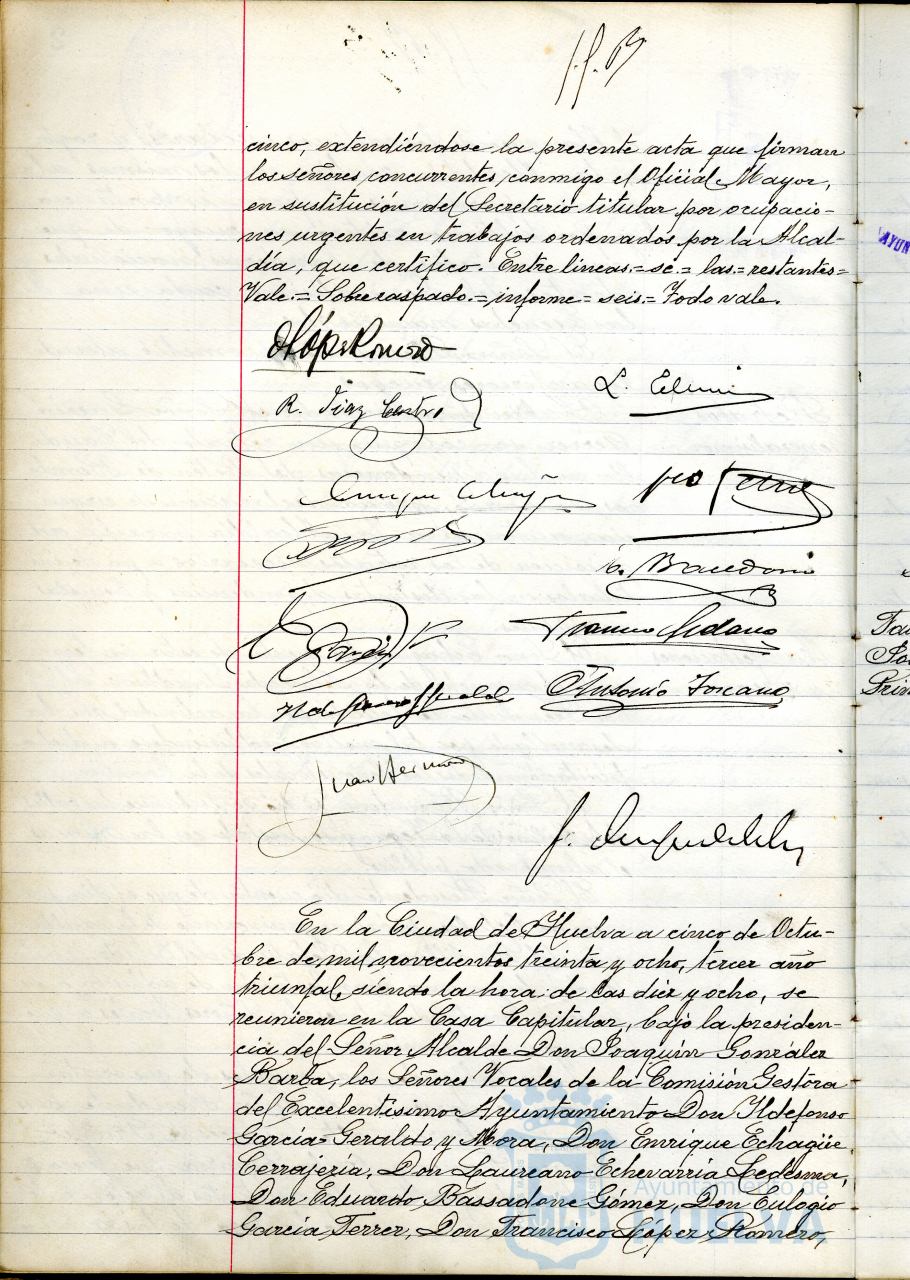 cinco, extendiéndose la presente acta que firman
los señores concurrentes conmigo el Oficial Mayor,
en sustitución del Secretario titular por ocupacio-
nes urgentes en trabajos ordenados por la Alcal-
día, que certifico. Entre líneas.=se.=las.=restantes=
Vale.=Sobreraspado.=informe=seis.=Todo vale.
R. Díaz Castro
Antonio Toscano
En la Ciudad de Huelva a cinco de Octu-
bre de mil novecientos treinta y ocho, tercer año
triunfal, siendo la hora de las diez y ocho, se
reunieron en la Casa Capitular, bajo la presiden-
cia del Señor Alcalde Don Joaquín González
Barba, los Señores Vocales de la Comisión Gestora
del Excelentísimo Ayuntamiento Don Ildefonso
García-Geraldo y Mora, Don Enrique Echagüe
Cerrajería, Don Laureano Echevarría Ledesma,
Don Eduardo Bassadone Gómez, Don Eulogio
García Ferrer, Don Francisco López Romero,
Ayuntamiento de
HUELVA
AYUN